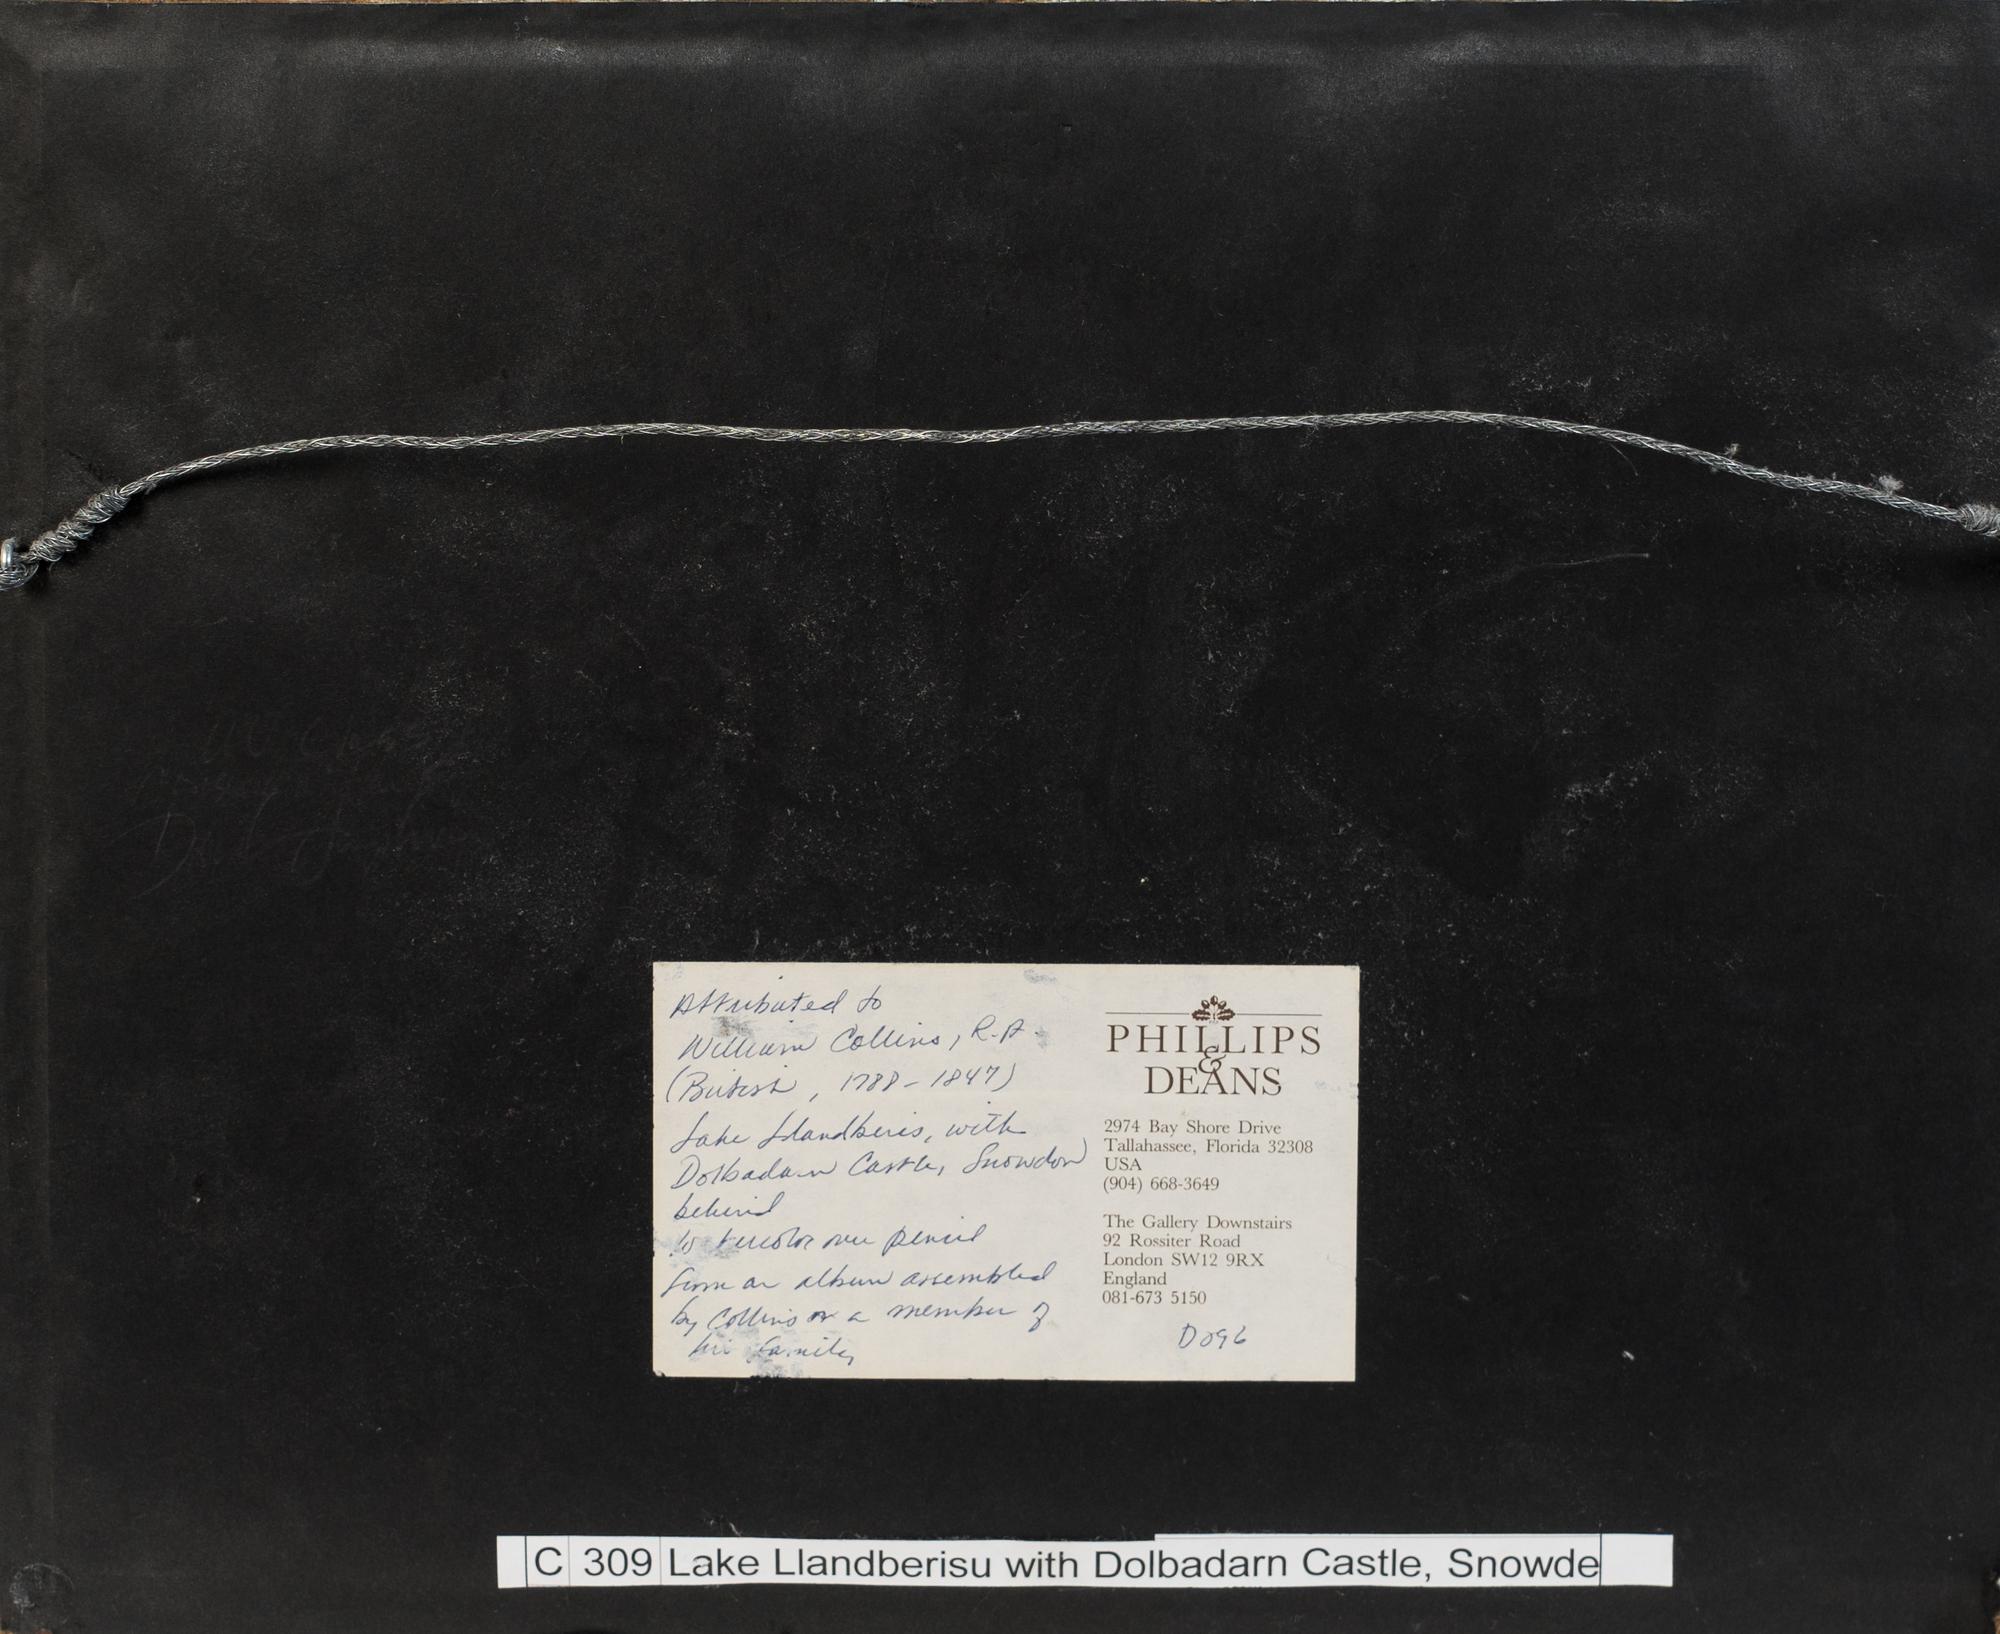 Attributed to
William Collins, R.A.
(British, 1788-1847)
Lake Llandberis, with
Dolbadarn Castle, Snowdon
behind
Watercolor over pencil
from an album assembled
by Collins or a member of
his family
PHILLIPS
&
DEANS
2974 Bay Shore Drive
Tallahassee, Florida 32308
USA
(904) 668-3649
The Gallery Downstairs
92 Rossiter Road
London SW12 9RX
England
081-673 5150
D096
C 309 Lake Llandberisu with Dolbadarn Castle, Snowde